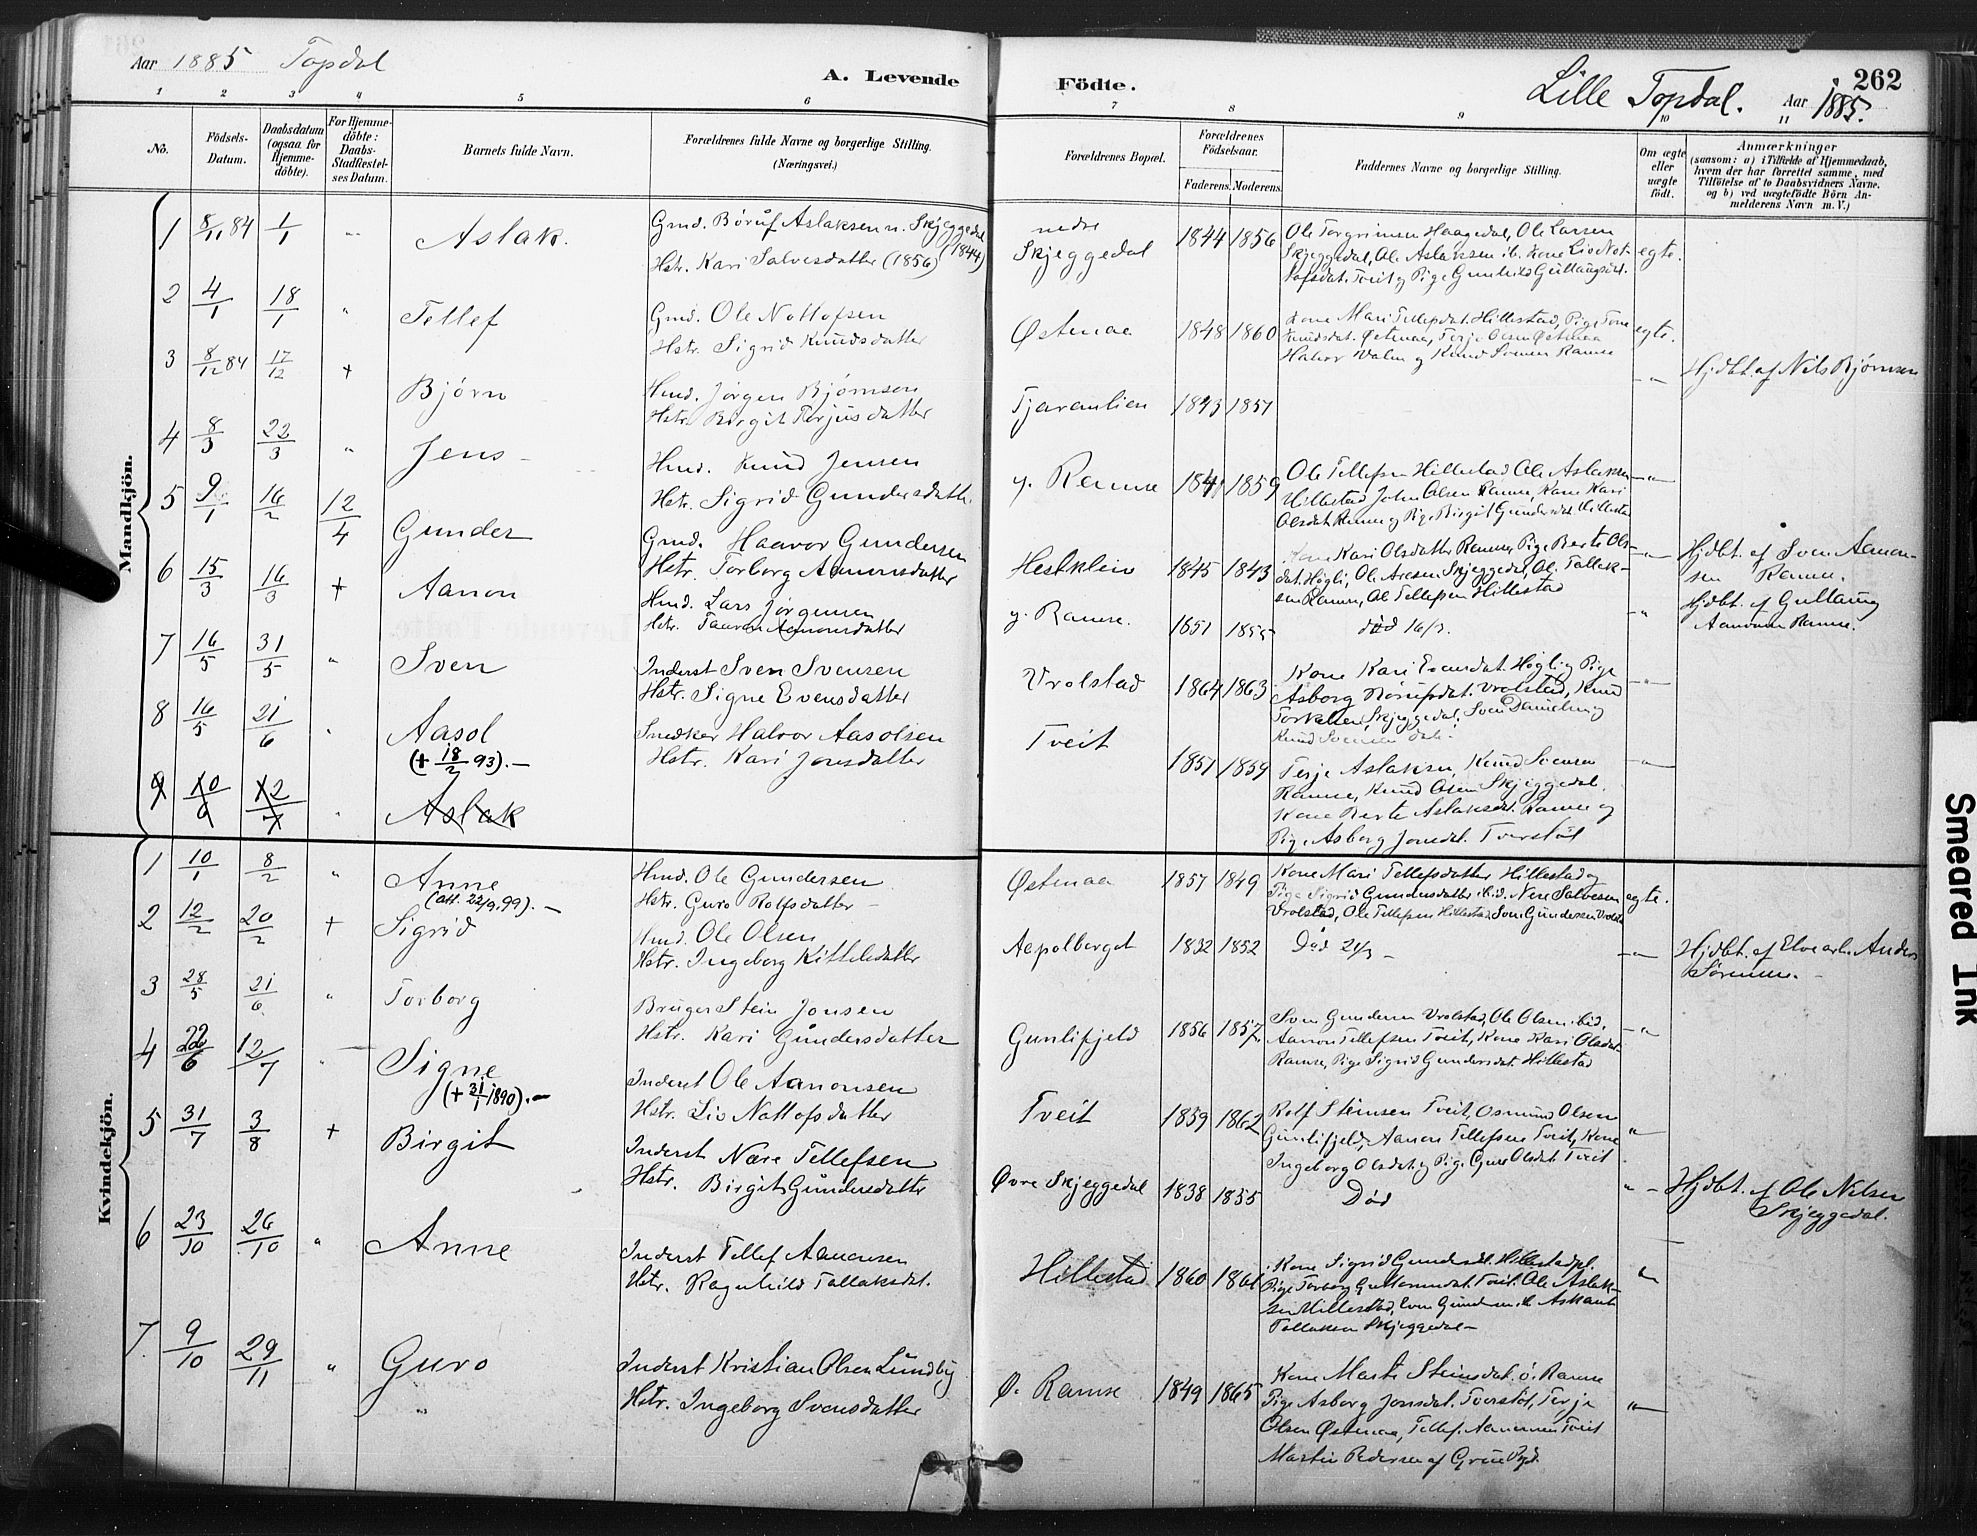 Aar 1885 Topdal
A. Levende
Födte.
Lille Topdal.
Aar 1885.
262
1 2 3 4 5 6 7 8 9 10 11
No.
Födsels-Datum.
Daabsdatum (ogsaa for Hjemme-döbte).
For Hjemme-döbte: Daabs-Stadfæstel-ses Datum.
Barnets fulde Navn.
Forældrenes fulde Navne og borgerlige Stilling.
(Næringsvei.)
Forældrenes Bopæl.
Forældrenes Födselsaar.
Faderens. Moderens.
Faddernes Navne og borgerlige Stilling.
Om ægte eller uægte födt.
Anmærkninger
(saasom: a) i Tilfælde af Hjemmedaab,
hvem der har forrettet samme, med
Tilföielse af to Daabsvidners Navne.
og b) ved uægtefödte Börn An-
melderens Navn m. V.)
Mandkjön.
1 8/11 84 1/1 " Aslak. Gmd. Børuf Aslaksen n. Skjeggedal (1844)
Hstr. Kari Salvesdatter (1856)
nedre Skjeggedal 1844 1856 Ole Torgrimsen Haagedal, Ole Larsen
Skjeggedal, Ole Aslaksen ib. Kone Liv Not-
tofsdat. Tveit og Pige Gunhild egte.
2 4/1 18/1 " Tellef Gmd. Ole Nottofsen
Hstr. Sigrid Knudsdatter
Østenaa 1848 1860 Kone Mari Tellefsdat. Hillestad, Pige Tone
Knudsdat. Østenaa, Terje Olsen Østenaa
Halvor og Knud Svensen Ramse egte.
3 8/12 84 17/12 + Bjørn Hmd. Jørgen Bjørnsen
Hstr. Birgit Terjusdatter
Tjaranlien 1843 1851 Hjdbt. af Nils Bjørnsen
4 8/3 22/3 " Jens Hmd. Knud Jensen
Hstr. Sigrid Gundersdatter
y. Ramse 1841 1859 Ole Tellefsen Hillestad, Ole Aslaksen
Hillestad, John Olsen Ramse, Kone Kari
Olsdat. Ramse og Pige Birgit Gundersdat. Hillestad
5 9/1 16/2 12/4 Gunder Gmd. Haavor Gundersen
Hstr. Torborg Aanonsdatter
Hestklein 1845 1843 Kone Kari Olsdatter Ramse, Pige Berte Ols-
dat. Høgli, Ole Skjeggedal, Ol. Tallak-
sen Ramse, Ol Tellefsen Hillestad
Hjdbt. af Sven Aanon-
sen Ramse.
6 15/3 16/3 + Aanon Hmd. Lars Jørgensen
Hstr. Aanonsdatter
y. Ramse. 1851 1855 død 16/3. Hjdbt. af
Ramse.
7 16/5 31/5 " Sven Inderst Sven Svensen
Hstr. Signe Evensdatter
Vrolstad 1864 1863 Kone Kari Evensdat. Høgli, Pige
Asborg Vrolstad, Knud
Torkelsen Skjeggedal, Sven og
Knud Svensen
8 16/5 21/6 " Aasol
(+ 18/2 93).—
Snedker Halvor Aasolsen
Hstr. Kari Jonsdatter
Tveit 1851 1859 Terje Aslaksen, Knud Svensen
Ramse, Knud Olsen Skjeggedal.
Kone Berte Aslaksdat. Ramse og
Pige Asborg Jonsdat. Tverstøl
9 10/6 12/7 " Aslak
Kvindekjön.
1 10/1 8/2 " Anne
(att. 22/9.99).—
Hmd. Ole Gundersen
Hstr. Guro Rolfsdatter
Østenaa 1857 1849 Kone Mari Tellefsdatter Hillestad og
Pige Sigrid Gundersdatter ibid. Nere Salvesen
Vrolstad, Ole Tellefsen Hillestad, Sven Gundersen egte.
2 12/2 20/2 + Sigrid Hmd. Ole Olsen
Hstr. Ingeborg Kittelsdatter
Aepolberget 1832 1852 Død 24/3 — Hjdbt. af Anders
Sørensen. —
3 28/5 21/6 " Torborg Bruger Stein Jonsen
Hstr. Kari Gundersdatter
Gunlifjeld 1856 1857 Sven Gundersen Vrolstad, Ole Olsen ibid.
Aanon Tellefsen Tveit, Kone Kari Olsdat.
Ramse, Pige Sigrid Gundersdat. Hillestad
4 22/6 12/7 " Signe
(+ 31/1 1890).—
Inderst Ole Aanonsen
Hstr. Liv Nottofsdatter
Tveit 1859 1862 Rolf Steinsen Tveit, Osmund Olsen
Gunlifjeld, Aanon Tellefsen Tveit, Kone
Ingeborg Olsdat. og Pige Guro Olsdat. Tveit
5 31/7 3/8 + Birgit Inderst Nære Tellefsen
Hstr. Birgit Gundersdatter
Øvre Skjeggedal 1838 1855 Død Hjdbt. af Ole Nilsen
Skjeggedal.
6 23/10 26/10 " Anne Inderst Tellef Aanonsen
Hstr. Ragnhild Tallaksdat.
Hillestad 1860 1861 Kone Sigrid Gundersdt. Hillestad,
Pige Torborg Guttormsdat. Tveit. Ole Aslak-
sen Hillestad, Even Gundersen
Tallaksen Skjeggedal—
7. 9/10 29/11 " Guro Inderst Kristian Olsen Lundby
Hstr. Ingeborg Svensdatter
Ø. Ramse 1849 1865 Kone Marte Steinsdat. ø. Ramse
Pige Asborg Jonsdat. Tverstøl, Terje
Olsen Østenaa, Tellef Aanonsen Tveit
Martin Pedersen af Grue Pgd.
Smeared Ink